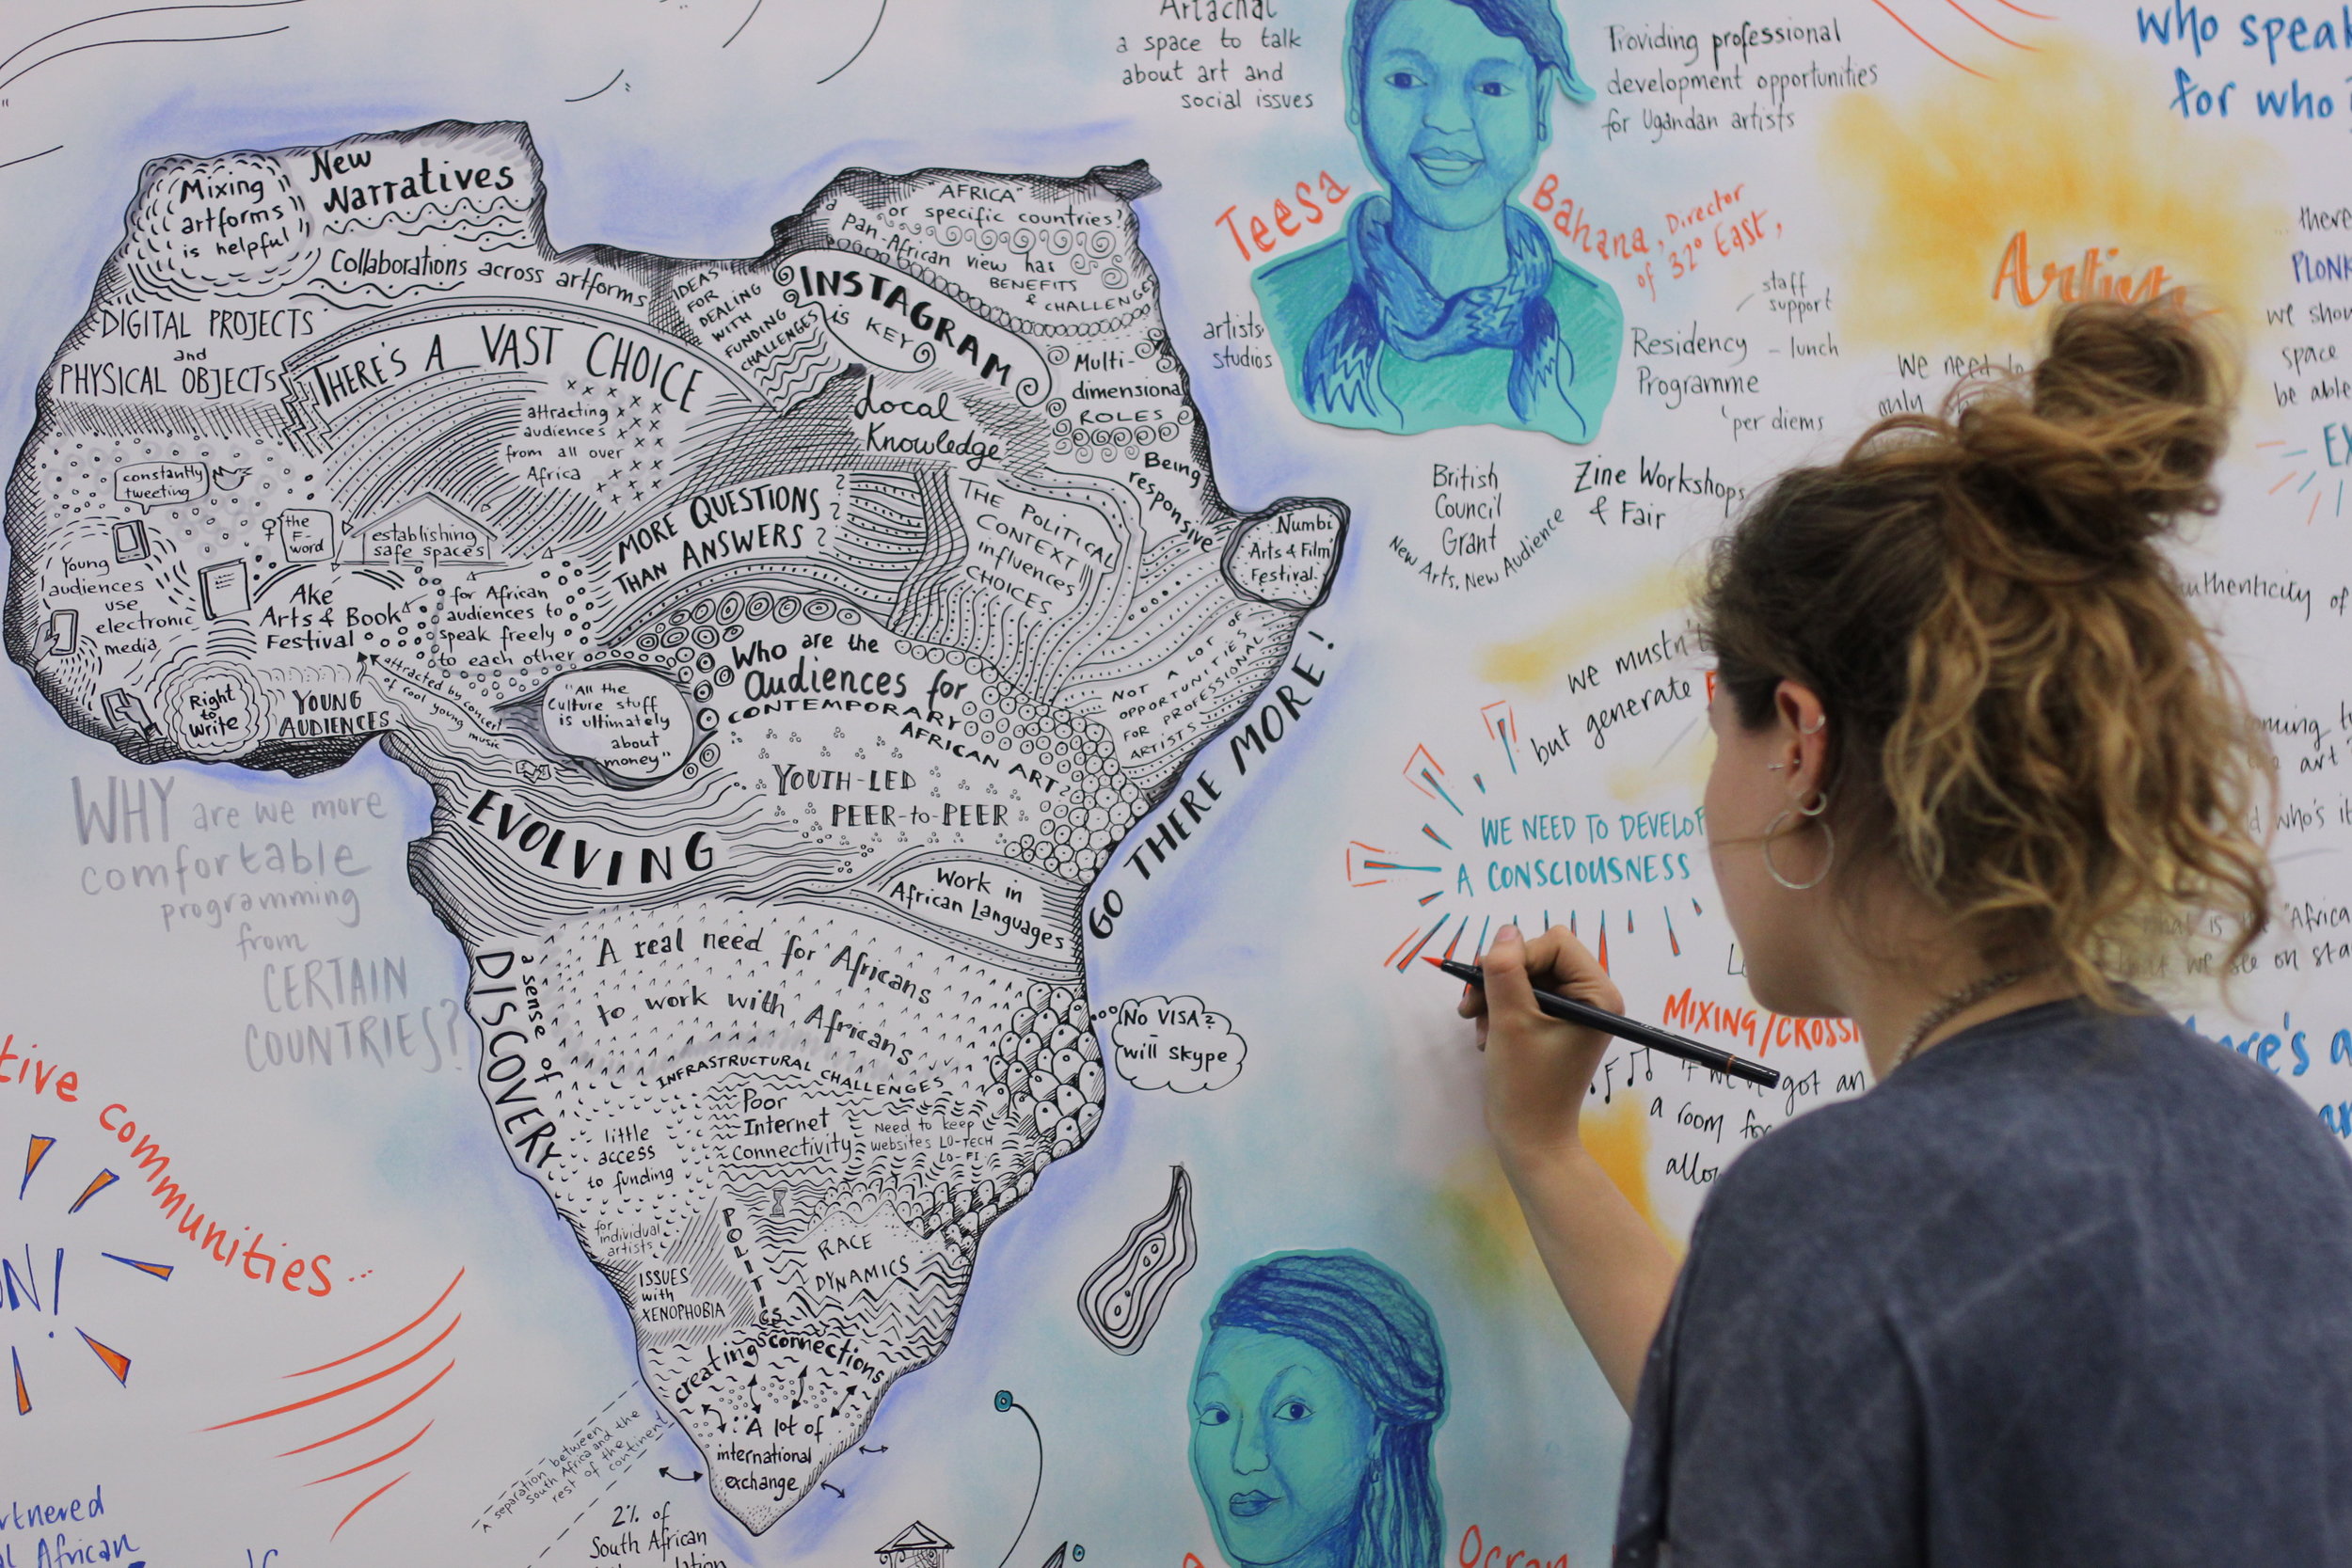 Mixing
artforms
is helpful
New
Narratives
Collaborations across artforms
DIGITAL PROJECTS
and
PHYSICAL OBJECTS
THERE'S A VAST CHOICE
attracting
audiences
from all over
Africa
IDEAS
FOR
DEALING
WITH
FUNDING
CHALLENGES
"AFRICA"
or specific countries?
a pan-African view has
BENEFITS
& CHALLENGES
INSTAGRAM
is KEY
Multi-
dimensional
ROLES
Local
Knowledge
Being
responsive
constantly
tweeting
the
F-
word
establishing
safe spaces
Young
audiences
use
electronic
media
Ake
Arts & Book
Festival
for African
audiences to
speak freely
to each other
attracted by concert
of cool young music
Right
to
Write
YOUNG
AUDIENCES
MORE QUESTIONS
THAN ANSWERS?
THE POLITICAL
CONTEXT
influences
CHOICES
Numbi
Arts & Film
Festival
NOT A LOT OF
OPPORTUNITIES
FOR PROFESSIONAL
ARTISTS
"All the
Culture stuff
is ultimately
about
money"
Who are the
audiences for
CONTEMPORARY
AFRICAN ART?
YOUTH-LED
PEER-to-PEER
EVOLVING
GO THERE MORE!
Work in
African Languages
a sense of
DISCOVERY
A real need for Africans
to work with Africans
INFRASTRUCTURAL CHALLENGES
Poor
Internet
Connectivity
Need to keep
websites LO-TECH
LO-FI
little
access
to funding
for
individual
artists
ISSUES
with
XENOPHOBIA
POLITICS
RACE
DYNAMICS
creating connections
A lot of
international
exchange
No VISA?
-
will Skype
WHY are we more
comfortable
programming
from
CERTAIN
COUNTRIES?
communities...
A separation between
South Africa and the
rest of the
continent
2% of
South African
African
Artachat
a space to talk
about art and
social issues
Providing professional
development opportunities
for Ugandan artists
Teesa
Bahana, Director
of 32° East,
artists
studios
staff
support
Residency
Programme
- lunch
per diems
British
Council
Grant
New Arts, New Audience
Zine Workshops
& Fair
who speak
for who
we need to
only
PLONK
space
be able
authenticity of
we mustn't
but generate
WE NEED TO DEVELOP
A CONSCIOUSNESS
MIXING/CROSSI
got an
a room for
"Africa
we see on sta
art
who's it